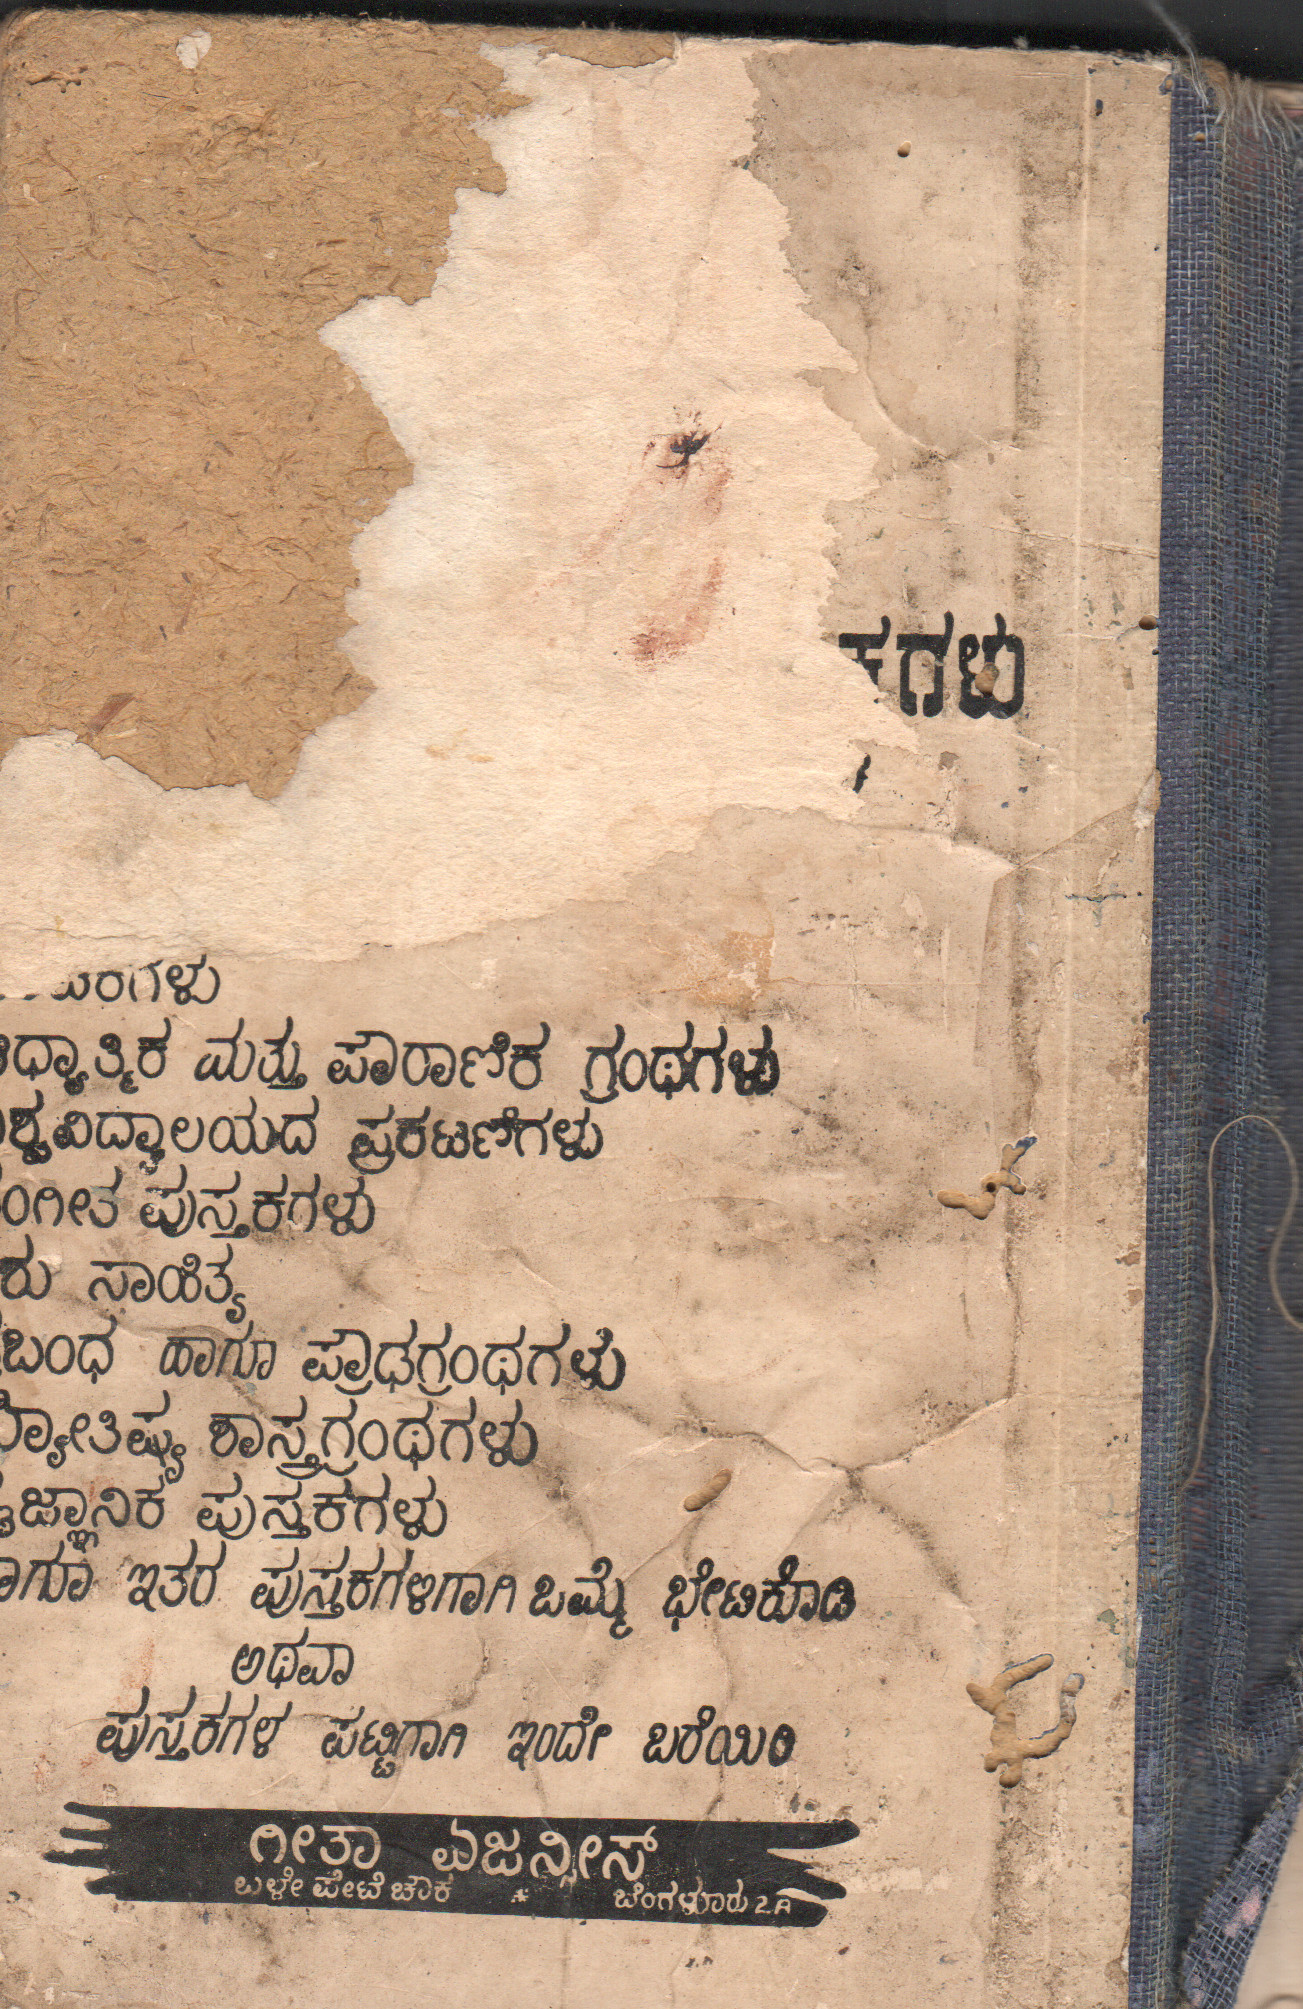 ಕಗಳು
ಆಧ್ಯಾತ್ಮಿಕ ಮತ್ತು ಪೌರಾಣಿಕ ಗ್ರಂಥಗಳು
ಶ್ವವಿದ್ಯಾಲಯದ ಪ್ರಕಟಣೆಗಳು
ಂಗೀತ ಪುಸ್ತಕಗಳು
ರು ಸಾಹಿತ್ಯ
ಬಂಧ ಹಾಗೂ ಪ್ರೌಢಗ್ರಂಥಗಳು
ಜ್ಯೋತಿಷ್ಯ ಶಾಸ್ತ್ರಗ್ರಂಥಗಳು
ವೈಜ್ಞಾನಿಕ ಪುಸ್ತಕಗಳು
ಹಾಗೂ ಇತರ ಪುಸ್ತಕಗಳಿಗಾಗಿ ಒಮ್ಮೆ ಭೇಟಿಕೊಡಿ
ಅಥವಾ
ಪುಸ್ತಕಗಳ ಪಟ್ಟಿಗಾಗಿ ಇಂದೇ ಬರೆಯಿರಿ
ಗೀತಾ ಏಜನ್ಸೀಸ್
ಬಳ್ಳೇಪೇಟೆ ಚೌಕ * ಬೆಂಗಳೂರು 2A